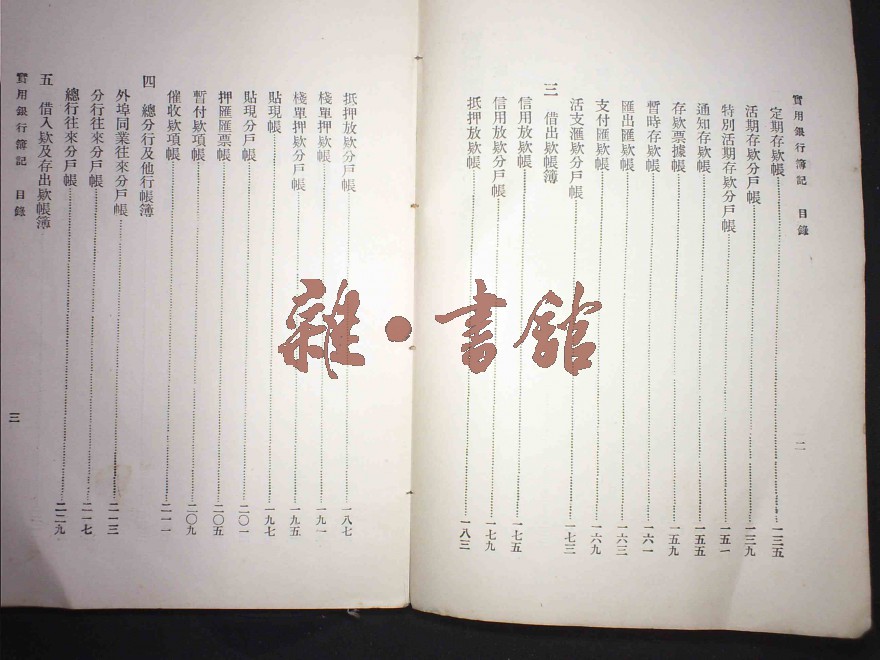 實用銀行簿記 目錄
二
定期存欵帳 一三五
活期存欵分戶帳 一三九
特別活期存欵分戶帳 一五一
通知存欵帳 一五五
存欵票據帳 一五九
暫時存欵帳 一六一
匯出匯欵帳 一六三
支付匯欵帳 一六九
活支滙欵分戶帳 一七三
三 借出欵帳簿
信用放欵帳 一七五
信用放欵分戶帳 一七九
抵押放欵帳 一八三
抵押放欵分戶帳 一八七
棧單押欵帳 一九一
棧單押欵分戶帳 一九五
貼現帳 一九七
貼現分戶帳 二〇一
押匯匯票帳 二〇五
暫付欵項帳 二〇九
催收欵項帳 二一一
四 總分行及他行帳簿
外埠同業往來分戶帳 二一三
分行往來分戶帳 二一七
總行往來分戶帳 二二九
五 借入欵及存出欵帳簿
實用銀行簿記 目錄
三
雜·書館